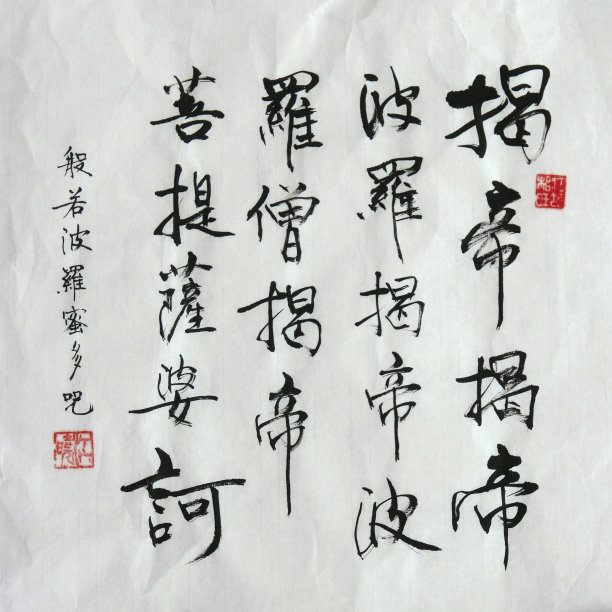 揭帝揭啼
波羅揭帝波
羅僧揭帝
菩提薩婆訶
般若波羅蜜多呪